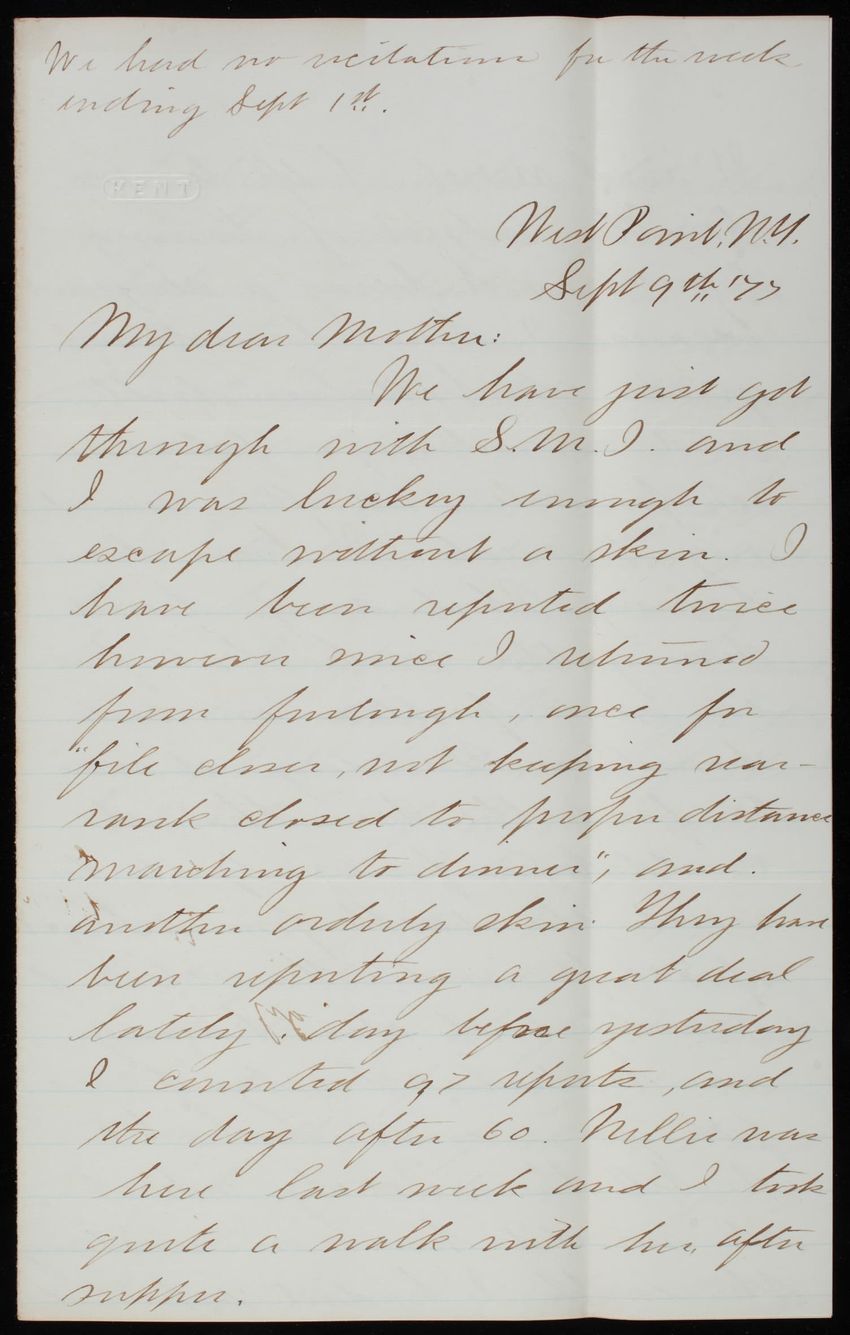 We had no recitations for the week
ending Sept 1st.
KENT
West Point, N.Y.
Sept 9th '77
My dear Mother:
We have just got
through with S.M.I. and
I was luckey enough to
escape without a skin. I
have been reported twice
however since I returned
from furlough, once for
"file closer, not keeping rear-
rank closed to proper distance
marching to dinner", and
another orderly skin. They have
been reporting a great deal
lately. day before yesterday
I counted 97 reports, and
the day after 60. Nellie was
here last week and I took
quite a walk with her, after
supper.